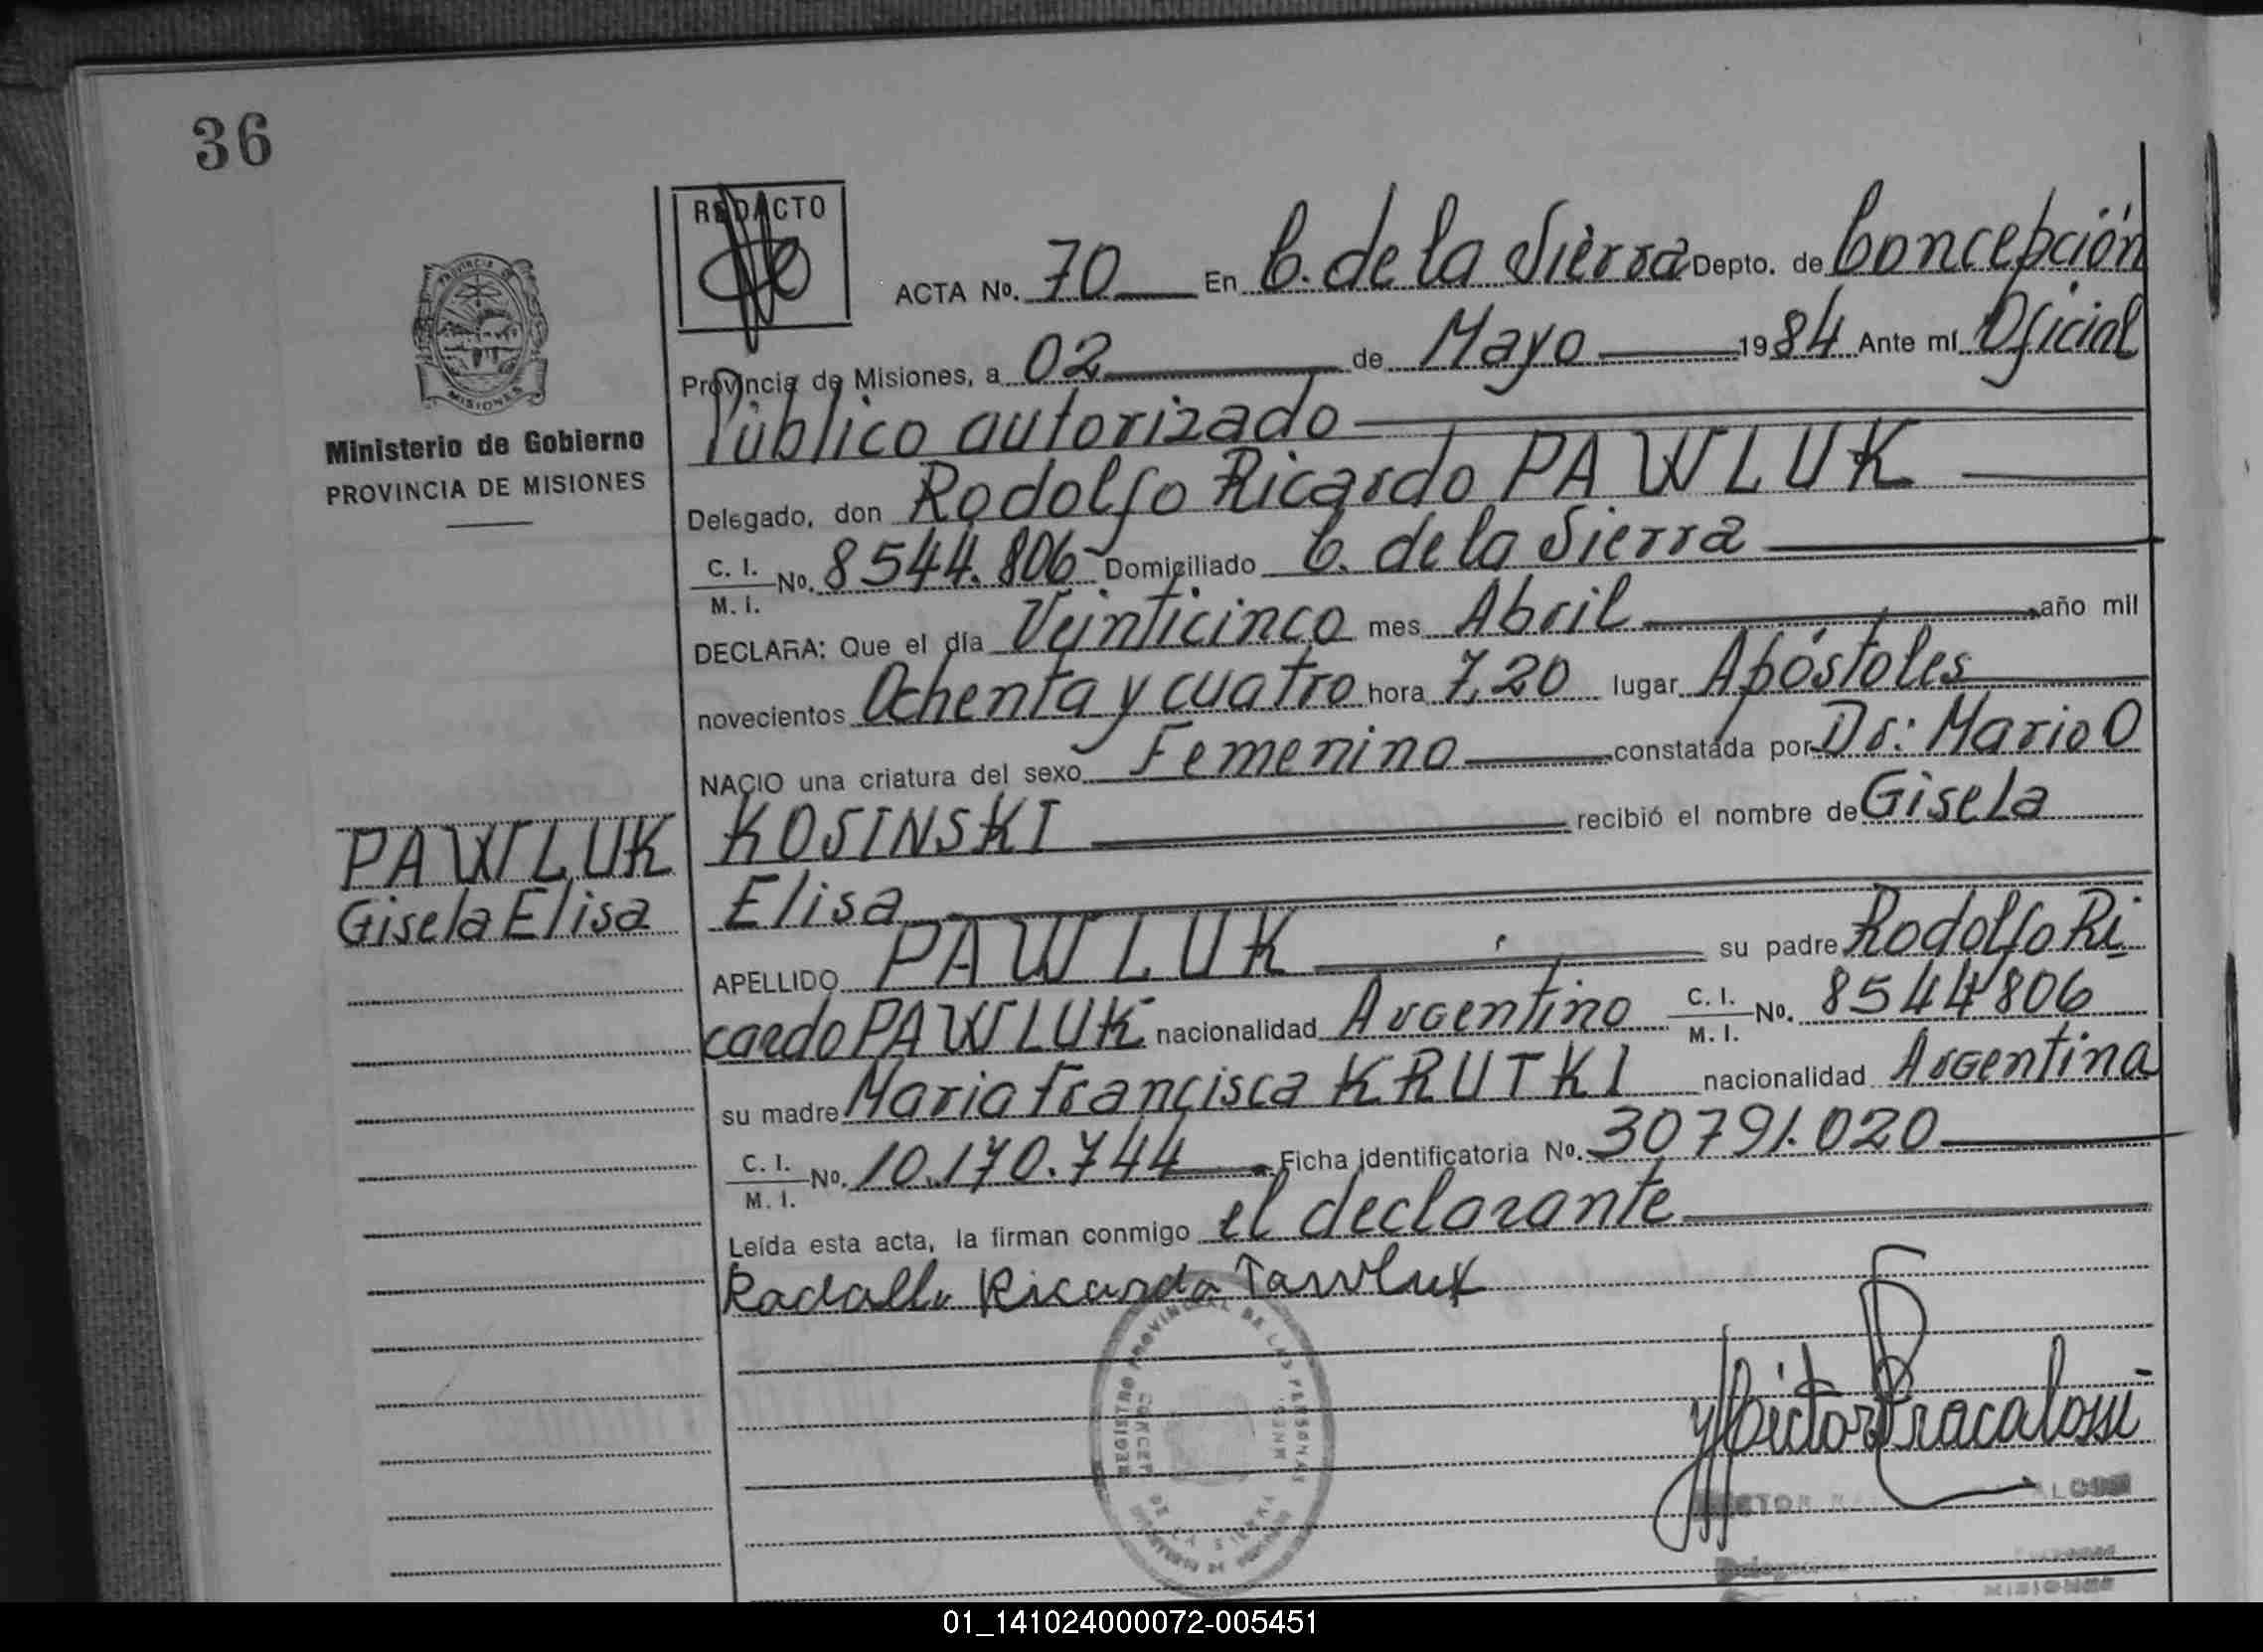 36
REDACTO
ACTA Nº. 70 En C. de la Sierra Depto. de Concepción
Provincia de Misiones, a 02 de Mayo 1984 Ante mí Oficial
Público autorizado
Delegado, don Rodolfo Ricardo PAWLUK
C. I.
M. I. Nº. 8544.806 Domiciliado C. de la Sierra
DECLARA: Que el día Veinticinco mes Abril año mil
novecientos Ochenta y cuatro hora 7,20 lugar Apóstoles
NACIO una criatura del sexo Femenino constatada por Dr: Mario O
KOSINSKI recibió el nombre de Gisela
Elisa
APELLIDO PAWLUK su padre Rodolfo Ri
cardo PAWLUK nacionalidad Argentino C. I. M. I. Nº. 8544806
su madre Maria Francisca KRUTKI nacionalidad Argentina
C. I.
M. I. Nº. 10.170.744 Ficha identificatoria Nº. 30791.020
Leída esta acta, la firman conmigo el declarante
Rodolfo Ricardo Pawluk
PROVINCIA DE
MISIONES
Ministerio de Gobierno
PROVINCIA DE MISIONES
PAWLUK
Gisela Elisa
REGISTRO PROVINCIAL DE LAS PERSONAS
DE LA SIERRA
Hector Fracalossi
01_141024000072-005451